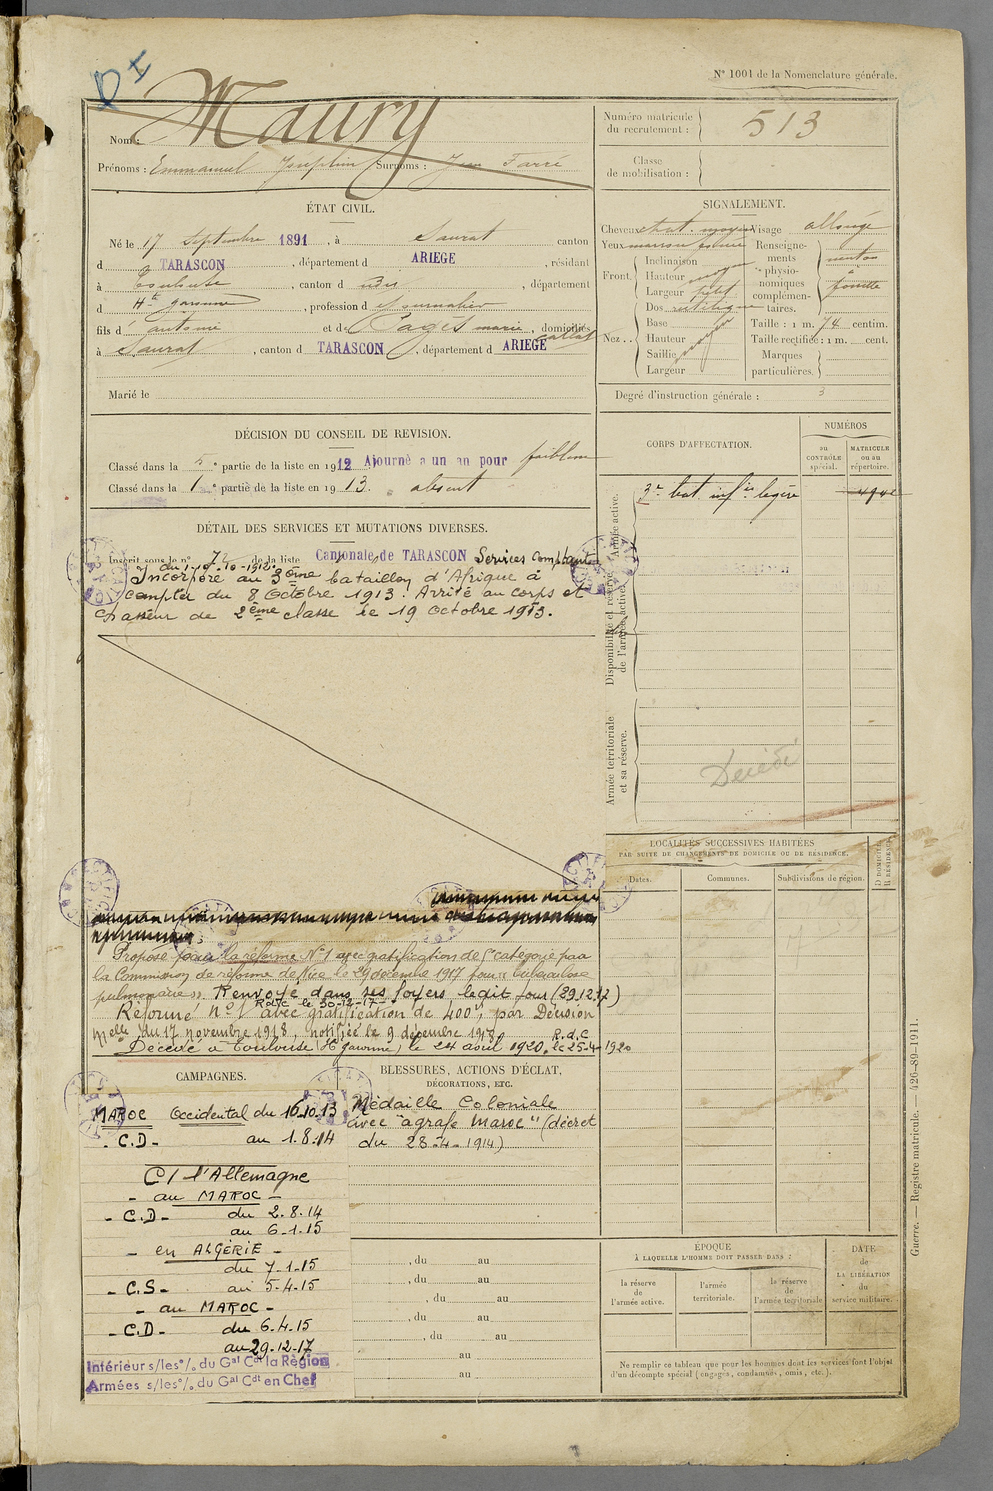 DI
N° 1001 de la Nomenclature générale.
Nom : Maury
Prénoms : Emmanuel Josephin Surnoms : Jean Farré
Numéro matricule du recrutement : 513
Classe de mobilisation :
ÉTAT CIVIL.
Né le 17 Septembre 1891, à Saurat canton
d e TARASCON, département d ARIEGE, résidant
à Toulouse, canton d dudit, département
d Hte garonne, profession d Journalier
fils d' antoine et de Pagès marie, domiciliés
à Saurat, canton d TARASCON, département d ARIEGE
Marié le
SIGNALEMENT.
Cheveux chat. moyen Visage allongé
Yeux marron foncé
Front.
Inclinaison
Hauteur moyen
Largeur petit
Nez..
Dos rectiligne
Base
Hauteur moyen
Saillie
Largeur
Renseignements physionomiques complémentaires. menton à fossette
Taille : 1 m. 74 centim.
Taille rectifiée : 1 m. cent.
Marques particulières.
Degré d'instruction générale : 3
DÉCISION DU CONSEIL DE REVISION.
Classé dans la 5e partie de la liste en 1912 Ajourné a un an pour faiblesse
Classé dans la 1e partie de la liste en 1913. absent
DÉTAIL DES SERVICES ET MUTATIONS DIVERSES.
Inscrit sous le n° 72 de la liste Cantonale de TARASCON Services comptant
du 1-10-1912
Incorporé au 3ème bataillon d'Afrique à
compter du 8 Octobre 1913. Arrivé au corps et
chasseur de 2ème classe le 19 Octobre 1913.
Proposé pour la réforme N° 1 avec gratification de 5e catégorie par
la Commission de réforme de Nice le 29 décembre 1917 pour "tuberculose
pulmonaire". Renvoyé dans ses foyers ledit jour (29.12.17)
Rdlc le 30-12-17-
Réformé n° 1 avec gratification de 400f, par Décision
Melle du 17 novembre 1918, notifiée le 9 décembre 1918.
Décédé à Toulouse (Hte garonne) le 24 avril 1920. R.d.C. le 25-4-1920
CORPS D'AFFECTATION.
NUMÉROS
au CONTRÔLE spécial.
MATRICULE ou au répertoire.
Armée active.
3e bat. infie légère
Disponibilité et réserve de l'armée active.
Armée territoriale et sa réserve.
Décédé
LOCALITÉS SUCCESSIVES HABITÉES
PAR SUITE DE CHANGEMENTS DE DOMICILE OU DE RÉSIDENCE.
Dates.
Communes.
Subdivisions de région.
D DOMICILE R RÉSIDENCE
CAMPAGNES.
MAROC Occidental du 16.10.13
- C.D - au 1.8.14
C/ l'Allemagne
- au MAROC -
- C.D - du 2.8.14
au 6-1-15
- en ALGÉRIE -
du 7-1-15
- C.S - au 5-4-15
- au MAROC -
- C.D - du 6.4.15
au 29-12-17
Intérieur s/les °/. du Gal Cdt la Région
Armées s/les °/. du Gal Cdt en Chef
BLESSURES, ACTIONS D'ÉCLAT,
DÉCORATIONS, ETC.
Médaille Coloniale
avec "agrafe Maroc" (décret
du 28-4-1914)
, du au
, du au
, du au
, du au
, du au
au
au
ÉPOQUE
À LAQUELLE L'HOMME DOIT PASSER DANS :
la réserve de l'armée active.
l'armée territoriale.
la réserve de l'armée territoriale
DATE de LA LIBÉRATION du service militaire.
Ne remplir ce tableau que pour les hommes dont les services font l'objet
d'un décompte spécial (engagés, condamnés, omis, etc.).
Guerre. — Registre matricule. — 426-89-1911.